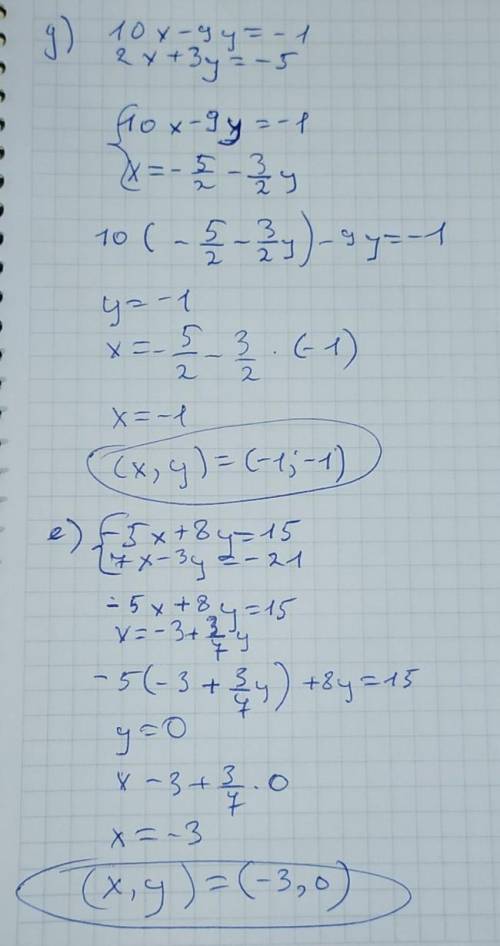 g) 10x-9y=-1
2x+3y=-5
{10x-9y=-1
x=-5/2-3/2y
10(-5/2-3/2y)-9y=-1
y=-1
x=-5/2-3/2·(-1)
x=-1
(x,y)=(-1;-1)
e) {-5x+8y=15
7x-3y=-21
-5x+8y=15
x=-3+3/7y
-5(-3+3/7y)+8y=15
y=0
x-3+3/7·0
x=-3
(x,y)=(-3,0)